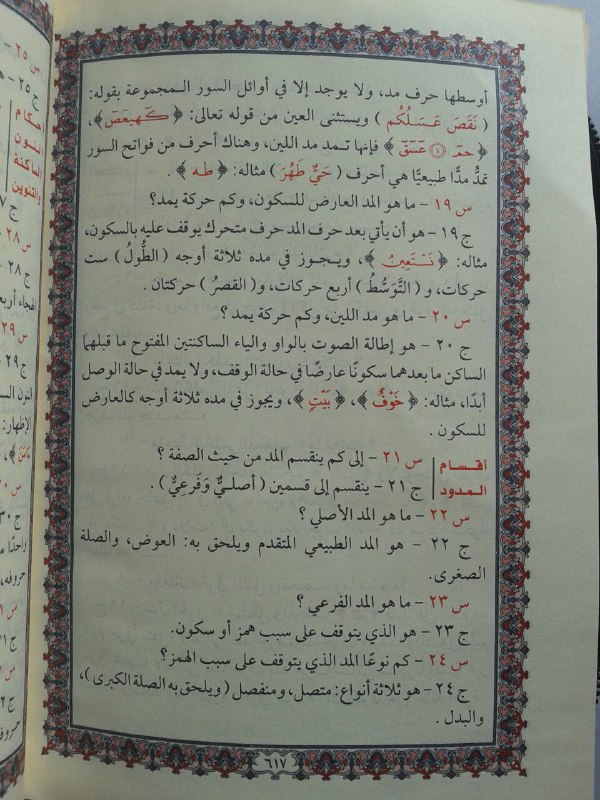 أوسطها حرف مد، ولا يوجد إلا في أوائل السور المجموعة بقوله:
( نَقَصَ عَسَلُكُم ) ويستثنى العين من قوله تعالى: ﴿ كٓهيعٓصٓ ﴾،
﴿ حمٓ ۝١ عٓسٓقٓ ﴾ فإنها تمد مد اللين، وهناك أحرف من فواتح السور
تمدُّ مدًّا طبيعيًّا هي أحرف ( حَيٌّ طَهُرَ ) مثاله: ﴿ طه ﴾ .
س ١٩ - ما هو المد العارض للسكون، وكم حركة يمد؟
ج ١٩ - هو أن يأتي بعد حرف المد حرف متحرك يوقف عليه بالسكون،
مثاله: ﴿ نَسْتَعِينُ ﴾، ويجوز في مده ثلاثة أوجه ( الطُّولُ ) ست
حركات، و ( التَّوَسُّطُ ) أربع حركات، و( القصرُ ) حركتان .
س ٢٠ - ما هو مد اللين، وكم حركة يمد ؟
ج ٢٠ - هو إطالة الصوت بالواو والياء الساكنتين المفتوح ما قبلهما
الساكن ما بعدهما سكونًا عارضًا في حالة الوقف، ولا يمد في حالة الوصل
أبدًا، مثاله: ﴿ خَوْفٌ ﴾، ﴿ بَيْتٍ ﴾، ويجوز في مده ثلاثة أوجه كالعارض
للسكون .
أقسام
المدود
س ٢١ - إلى كم ينقسم المد من حيث الصفة ؟
ج ٢١ - ينقسم إلى قسمين ( أصليٌّ وَفَرعيٌّ ) .
س ٢٢ - ما هو المد الأصلي ؟
ج ٢٢ - هو المد الطبيعي المتقدم ويلحق به: العوض، والصلة
الصغرى.
س ٢٣ - ما هو المد الفرعي ؟
ج ٢٣ - هو الذي يتوقف على سبب همز أو سكون.
س ٢٤ - كم نوعًا المد الذي يتوقف على سبب الهمز؟
ج ٢٤ - هو ثلاثة أنواع: متصل، ومنفصل ( ويلحق به الصلة الكبرى )،
والبدل .
٦١٧
س ٢٥ -
ج ٢٥ - ه
أحكام
النون
الساكنة
والتنوين
س ٢٨ -
ج ٢٨ -
الهجاء أرب
س ٢٩
ج ٢٩
النون الس
الإظهار: